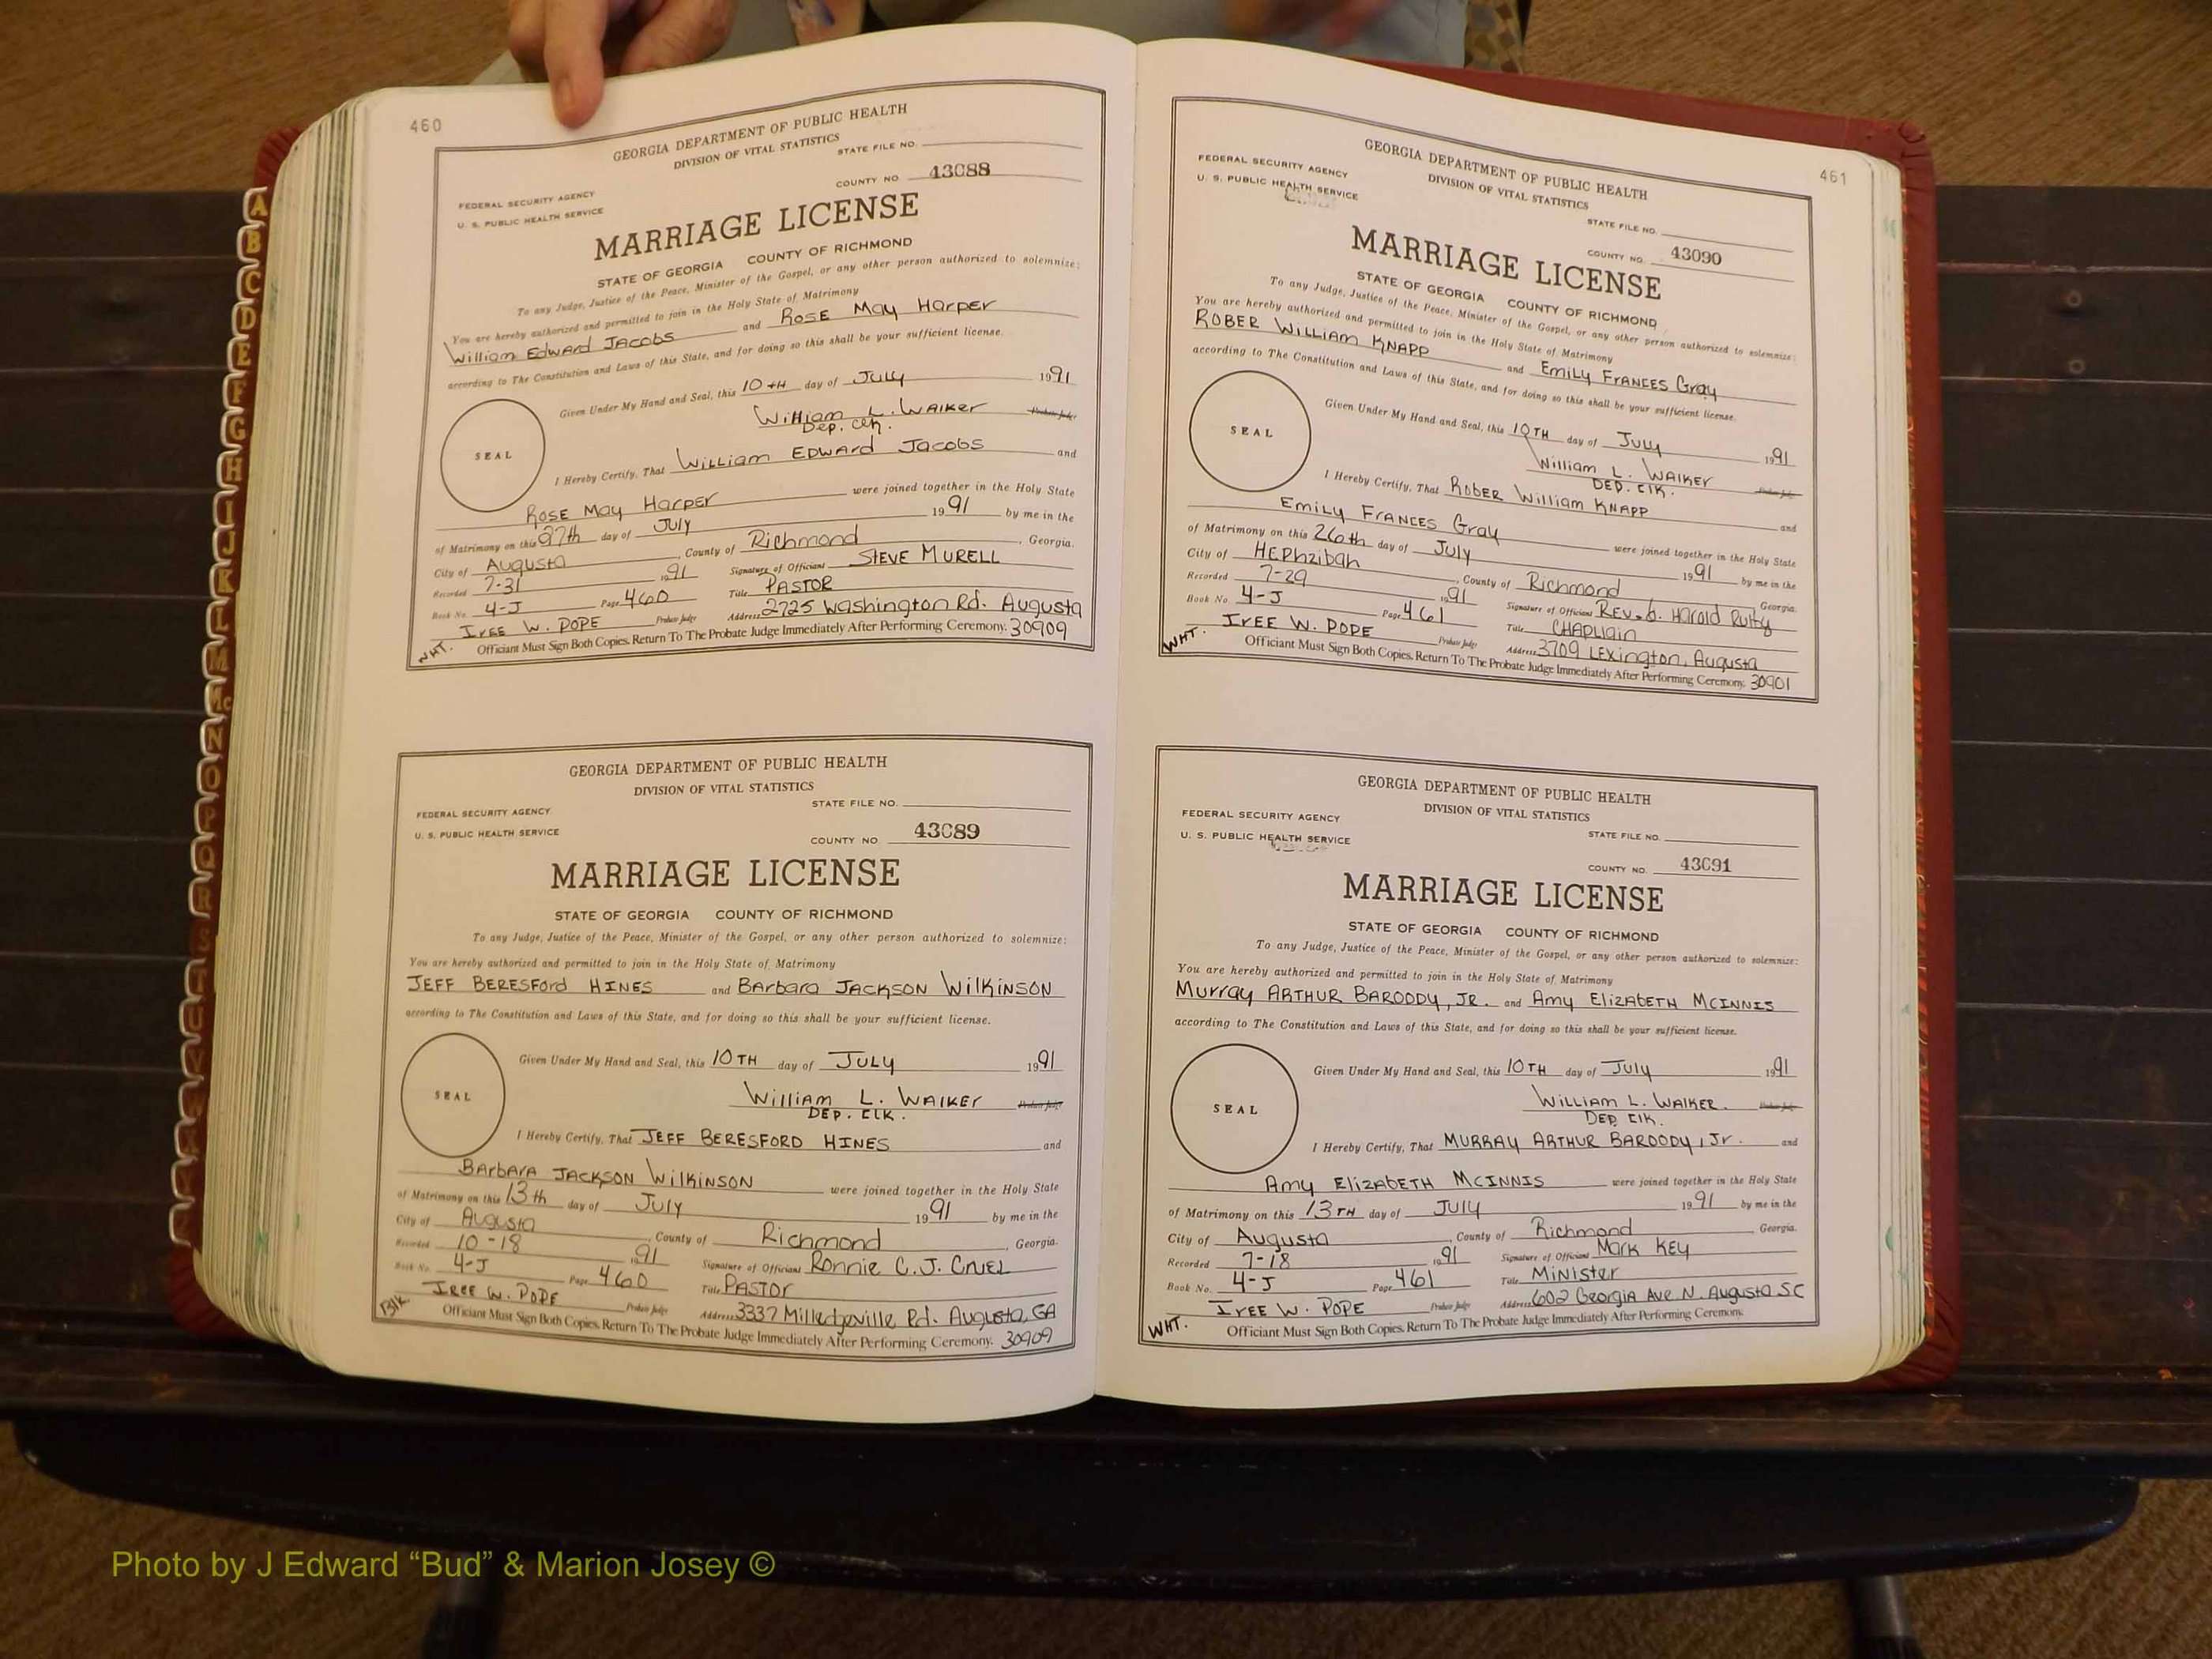 460
GEORGIA DEPARTMENT OF PUBLIC HEALTH
DIVISION OF VITAL STATISTICS
STATE FILE NO.
COUNTY NO. 43088
FEDERAL SECURITY AGENCY
U. S. PUBLIC HEALTH SERVICE
MARRIAGE LICENSE
STATE OF GEORGIA COUNTY OF RICHMOND
To any Judge, Justice of the Peace, Minister of the Gospel, or any other person authorized to solemnize:
You are hereby authorized and permitted to join in the Holy State of Matrimony
William Edward JACOBS and ROSE MAY HARPER
according to The Constitution and Laws of this State, and for doing so this shall be your sufficient license.
Given Under My Hand and Seal, this 10TH day of July 1991
William L. WALKER Probate Judge
Dep. Clk.
SEAL
I Hereby Certify, That William EDWARD JACOBS and
ROSE MAY HARPER were joined together in the Holy State
of Matrimony on this 27th day of July 1991 by me in the
City of Augusta, County of Richmond, Georgia.
Recorded 7-31 1991 Signature of Officiant STEVE MURELL
Book No. 4-J Page 460 Title PASTOR
IREE W. POPE Probate Judge Address 2725 Washington Rd. Augusta
WHT. Officiant Must Sign Both Copies. Return To The Probate Judge Immediately After Performing Ceremony. 30909
GEORGIA DEPARTMENT OF PUBLIC HEALTH
DIVISION OF VITAL STATISTICS
STATE FILE NO.
FEDERAL SECURITY AGENCY
U. S. PUBLIC HEALTH SERVICE
COUNTY NO. 43089
MARRIAGE LICENSE
STATE OF GEORGIA COUNTY OF RICHMOND
To any Judge, Justice of the Peace, Minister of the Gospel, or any other person authorized to solemnize:
You are hereby authorized and permitted to join in the Holy State of Matrimony
JEFF BERESFORD HINES and BARBARA JACKSON WILKINSON
according to The Constitution and Laws of this State, and for doing so this shall be your sufficient license.
Given Under My Hand and Seal, this 10TH day of JULY 1991
William L. WALKER Probate Judge
DEP. CLK.
SEAL
I Hereby Certify, That JEFF BERESFORD HINES and
BARBARA JACKSON WILKINSON were joined together in the Holy State
of Matrimony on this 13th day of July 1991 by me in the
City of Augusta, County of Richmond, Georgia.
Recorded 10-18 1991 Signature of Officiant RONNIE C.J. CRUEL
Book No. 4-J Page 460 Title PASTOR
IREE W. POPE Probate Judge Address 3337 Milledgeville Rd. Augusta, GA
BlK. Officiant Must Sign Both Copies. Return To The Probate Judge Immediately After Performing Ceremony. 30909
461
GEORGIA DEPARTMENT OF PUBLIC HEALTH
DIVISION OF VITAL STATISTICS
FEDERAL SECURITY AGENCY
U. S. PUBLIC HEALTH SERVICE
STATE FILE NO.
COUNTY NO. 43090
MARRIAGE LICENSE
STATE OF GEORGIA COUNTY OF RICHMOND
To any Judge, Justice of the Peace, Minister of the Gospel, or any other person authorized to solemnize:
You are hereby authorized and permitted to join in the Holy State of Matrimony
ROBER WILLIAM KNAPP and Emily FRANCES Gray
according to The Constitution and Laws of this State, and for doing so this shall be your sufficient license.
Given Under My Hand and Seal, this 10TH day of July 1991
William L. WALKER Probate Judge
DEP. Clk.
SEAL
I Hereby Certify, That ROBER William KNAPP and
Emily FRANCES Gray were joined together in the Holy State
of Matrimony on this 26th day of July 1991 by me in the
City of HEPhzibah, County of Richmond Georgia.
Recorded 7-29 1991 Signature of Officiant REV. Harold
Book No. 4-J Page 461 Title CHAPLIAIN
IREE W. POPE Probate Judge Address 3709 LEXington, Augusta
WHT. Officiant Must Sign Both Copies. Return To The Probate Judge Immediately After Performing Ceremony. 30901
GEORGIA DEPARTMENT OF PUBLIC HEALTH
DIVISION OF VITAL STATISTICS
FEDERAL SECURITY AGENCY
U. S. PUBLIC HEALTH SERVICE
STATE FILE NO.
COUNTY NO. 43091
MARRIAGE LICENSE
STATE OF GEORGIA COUNTY OF RICHMOND
To any Judge, Justice of the Peace, Minister of the Gospel, or any other person authorized to solemnize:
You are hereby authorized and permitted to join in the Holy State of Matrimony
Murray ARTHUR BAROODY, JR. and Amy ElizabETH McINNIS
according to The Constitution and Laws of this State, and for doing so this shall be your sufficient license.
Given Under My Hand and Seal, this 10TH day of July 1991
William L. WALKER. Probate Judge
DEP. Clk.
SEAL
I Hereby Certify, That MURRAY ARTHUR BAROODY, Jr. and
Amy ElizabETH McINNIS were joined together in the Holy State
of Matrimony on this 13TH day of July 1991 by me in the
City of Augusta, County of Richmond Georgia.
Recorded 7-18 1991 Signature of Officiant MARK KEY
Book No. 4-J Page 461 Title Minister
IREE W. POPE Probate Judge Address 602 Georgia Ave N. Augusta SC
WHT. Officiant Must Sign Both Copies. Return To The Probate Judge Immediately After Performing Ceremony.
A
B
C
D
E
F
G
H
I
J
K
L
M
Mc
N
O
P
Q
R
S
T
U
V
Photo by J Edward “Bud” & Marion Josey ©